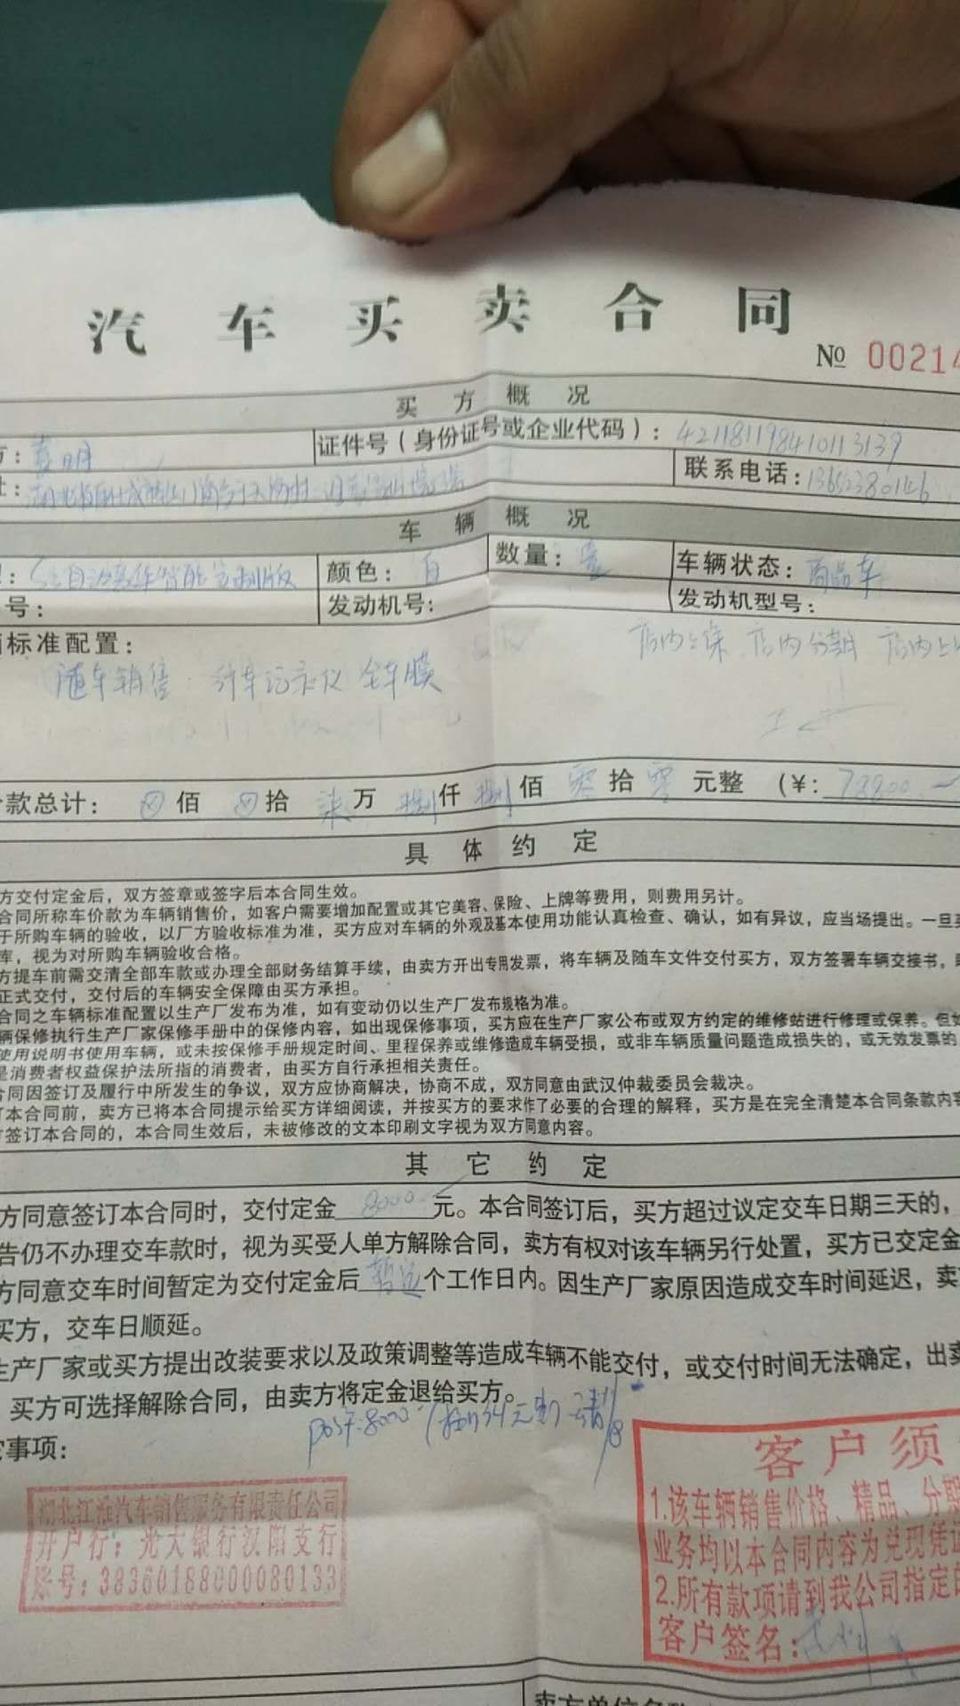 汽车买卖合同
№ 00214
买方概况
证件号（身份证号或企业代码）：421181198410113139
联系电话：
车辆概况
颜色：白 数量：壹 车辆状态：商品车
号： 发动机号： 发动机型号：
标准配置：
店内分期
随车销售 行车记录仪 全车膜
款总计： 佰 拾 柒万 捌仟 捌佰 零拾 零元整（¥：78800
具体约定
方交付定金后，双方签章或签字后本合同生效。
合同所称车价款为车辆销售价，如客户需要增加配置或其它美容、保险、上牌等费用，则费用另计。
于所购车辆的验收，以厂方验收标准为准，买方应对车辆的外观及基本使用功能认真检查、确认，如有异议，应当场提出。一旦
库，视为对所购车辆验收合格。
方提车前需交清全部车款或办理全部财务结算手续，由卖方开出专用发票，将车辆及随车文件交付买方，双方签署车辆交接书，
正式交付，交付后的车辆安全保障由买方承担。
合同之车辆标准配置以生产厂发布为准，如有变动仍以生产厂发布规格为准。
辆保修执行生产厂家保修手册中的保修内容，如出现保修事项，买方应在生产厂家公布或双方约定的维修站进行修理或保养。但
使用说明书使用车辆，或未按保修手册规定时间、里程保养或维修造成车辆受损，或非车辆质量问题造成损失的，或无效发票的
是消费者权益保护法所指的消费者，由买方自行承担相关责任。
合同因签订及履行中所发生的争议，双方应协商解决，协商不成，双方同意由武汉仲裁委员会裁决。
订本合同前，卖方已将本合同提示给买方详细阅读，并按买方的要求作了必要的合理的解释，买方是在完全清楚本合同条款内容
签订本合同的，本合同生效后，未被修改的文本印刷文字视为双方同意内容。
其它约定
方同意签订本合同时，交付定金8000元。本合同签订后，买方超过议定交车日期三天的，
告仍不办理交车款时，视为买受人单方解除合同，卖方有权对该车辆另行处置，买方已交定金
方同意交车时间暂定为交付定金后 个工作日内。因生产厂家原因造成交车时间延迟，卖
买方，交车日顺延。
生产厂家或买方提出改装要求以及政策调整等造成车辆不能交付，或交付时间无法确定，出卖
买方可选择解除合同，由卖方将定金退给买方。
事项：
8000
湖北江淮汽车销售服务有限责任公司
开户行：光大银行汉阳支行
账号：38360188000080133
客户须
1.该车辆销售价格、精品、分期
业务均以本合同内容为兑现凭证
2.所有款项请到我公司指定的
客户签名：